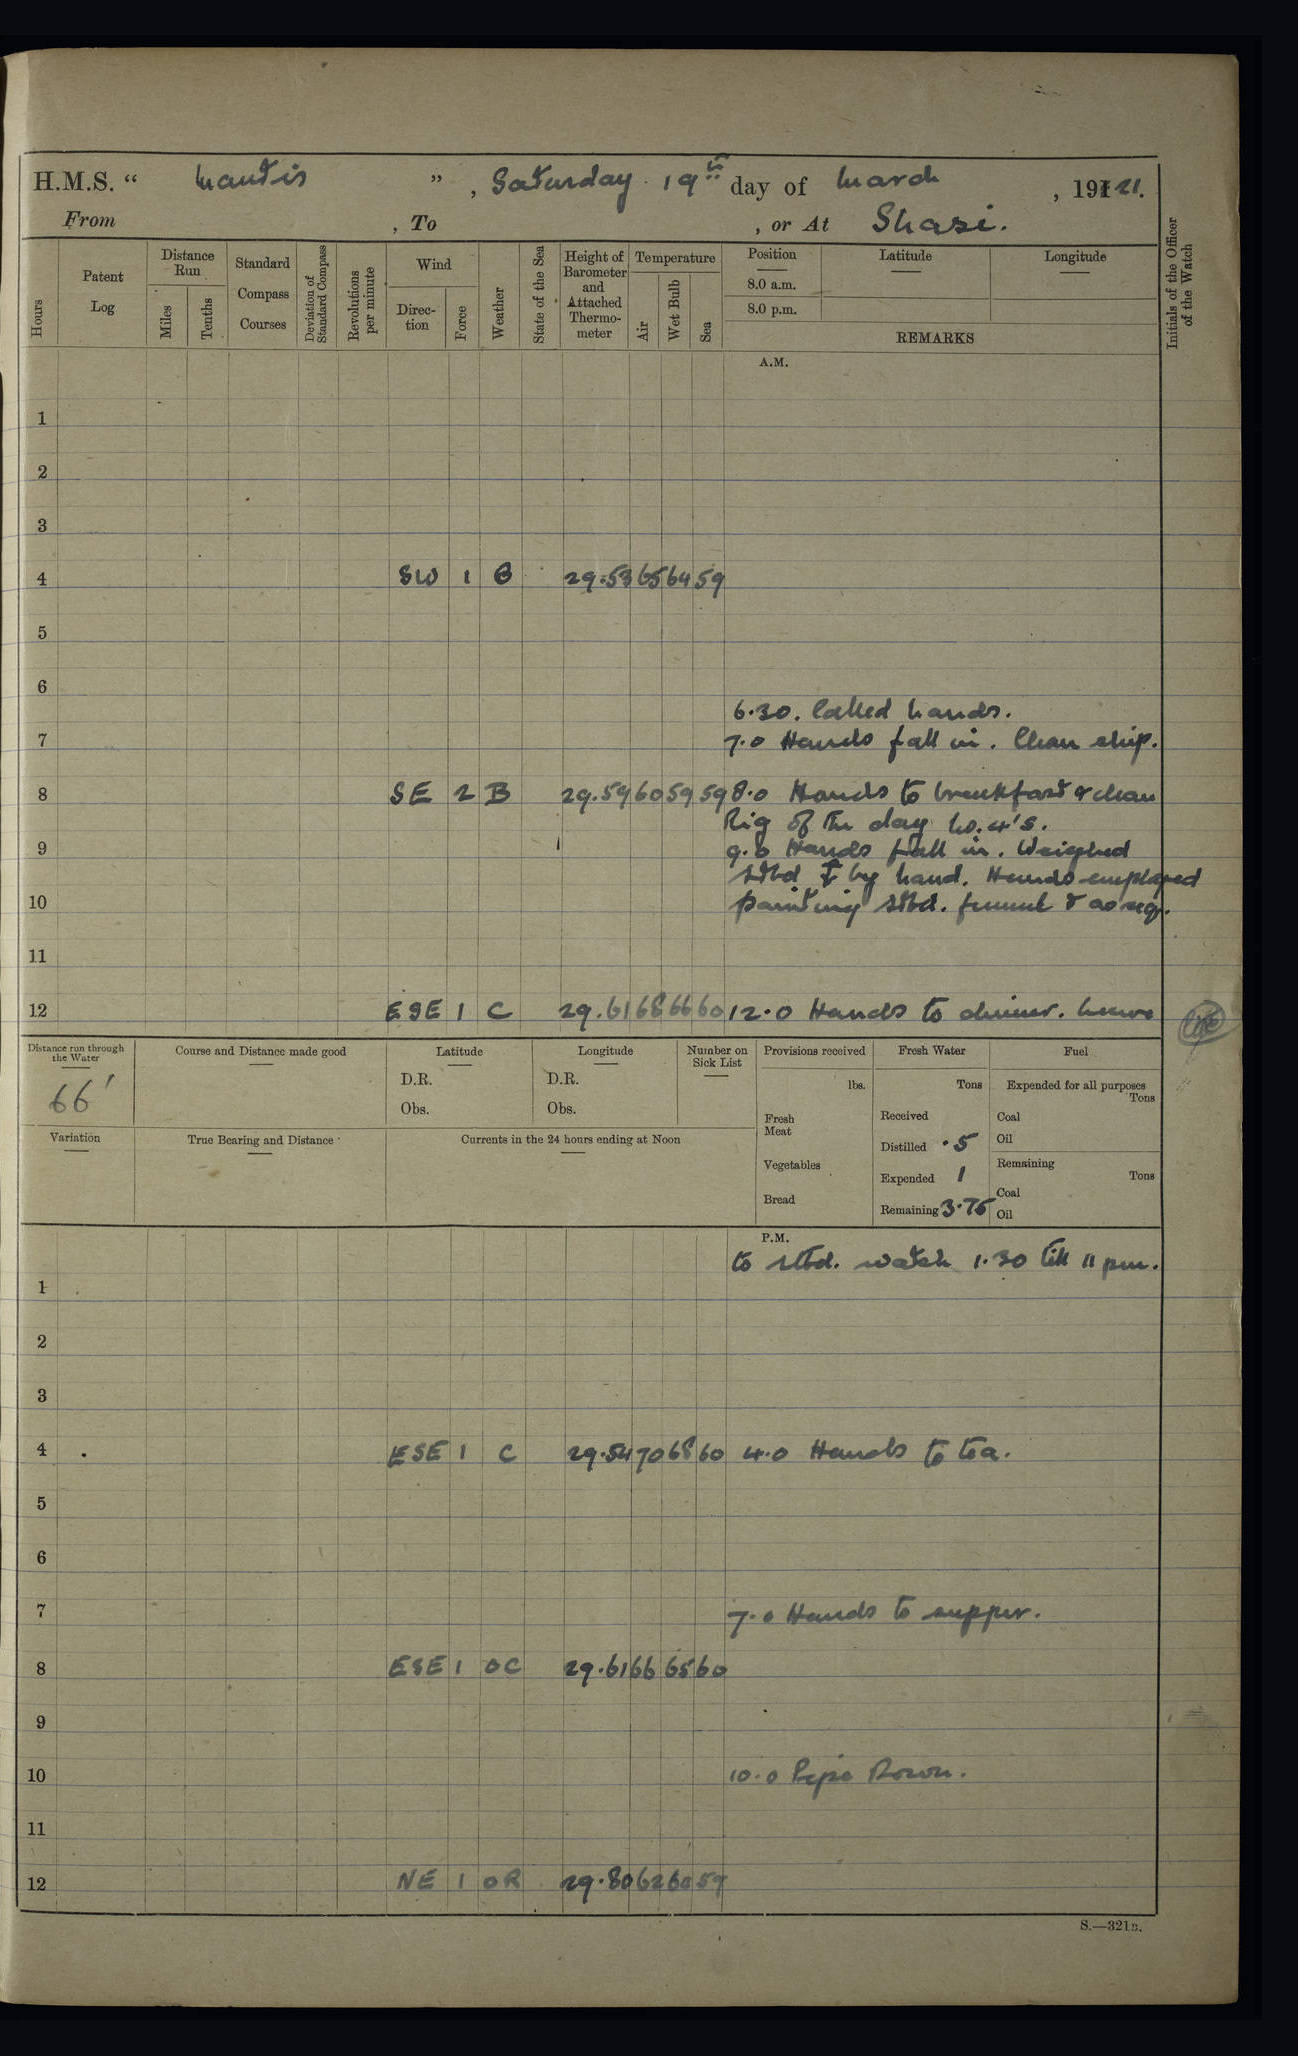 H.M.S. “ Mantis ” , Saturday 19th day of March , 191 21.
From , To , or At Shasi.
Hours
Patent Log
Distance Run
Miles
Tenths
Standard Compass Courses
Deviation of Standard Compass
Revolutions per minute
Wind
Direction
Force
Weather
State of the Sea
Height of Barometer and Attached Thermometer
Temperature
Air
Wet Bulb
Sea
Position
8.0 a.m.
8.0 p.m.
Latitude
Longitude
REMARKS
Initials of the Officer of the Watch
A.M.
1
2
3
4 SW 1 B 29.53 65 64 59
5
6
6.30. Called hands.
7 7.0 Hands fall in. Clean ship.
8 SE 2 B 29.59 60 59 59 8.0 Hands to breakfast & clean
Rig of the day No. 4's.
9 9.0 Hands fall in. Weighed
stbd ⚓ by hand. Hands employed
10 painting stbd. funnel & as req.
11
12 ESE 1 C 29.61 68 66 60 12.0 Hands to dinner. Leave
Distance run through the Water
66'
Course and Distance made good
Latitude
D.R.
Obs.
Longitude
D.R.
Obs.
Number on Sick List
Provisions received
lbs.
Fresh Meat
Vegetables
Bread
Fresh Water
Tons
Received
Distilled .5
Expended 1
Remaining 3.75
Fuel
Expended for all purposes
Tons
Coal
Oil
Remaining
Tons
Coal
Oil
Variation
True Bearing and Distance
Currents in the 24 hours ending at Noon
P.M.
to stbd. watch 1.30 till 11 pm.
1
2
3
4 ESE 1 C 29.54 70 68 60 4.0 Hands to tea.
5
6
7 7.0 Hands to supper.
8 ESE 1 OC 29.61 66 65 60
9
10 10.0 Pipe Down.
11
12 NE 1 OR 29.80 62 60 59
S.—321B.